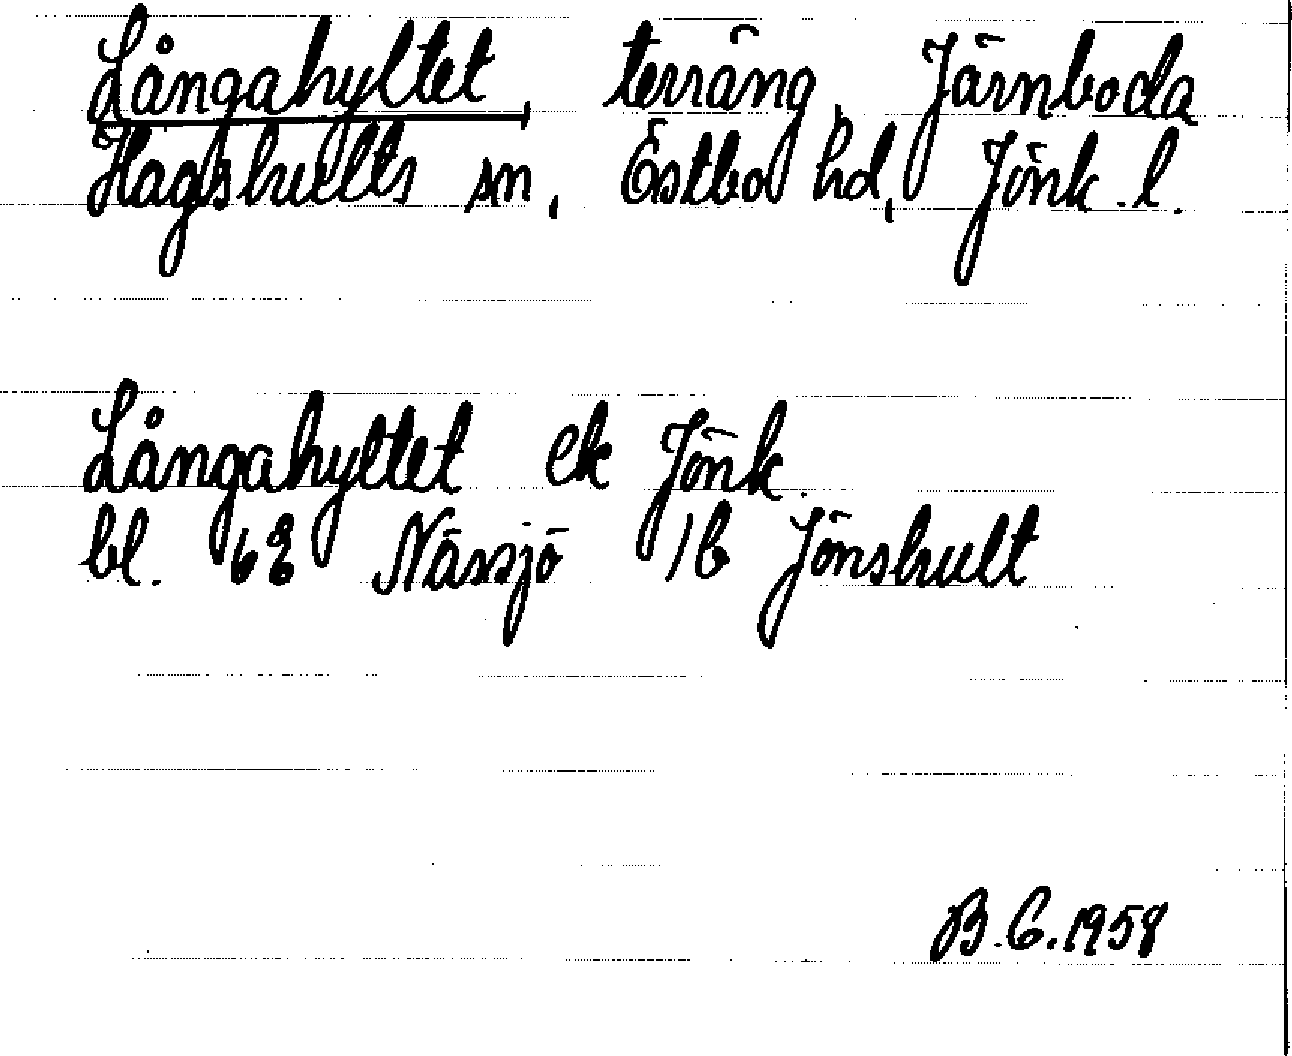 Långahyltet, terräng, Järnboda
Hagshults sn, Östbo hd, Jönk. l.
Långahyltet ek Jönk.
bl. 62 Nässjö 1b Jönshult
B.G.1958